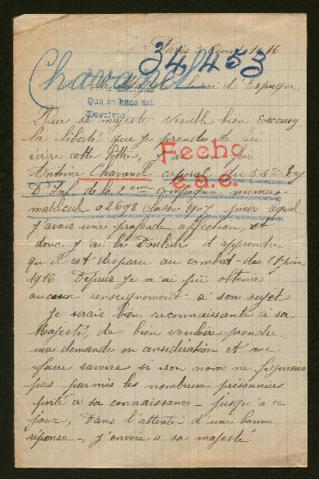 Paris
341453
Chavanel
roi d'Espagne
Que se haga así
Que sa majesté veuille bien excuser
la liberté que je prends de lui
écrire cette lettre,
Fecho
e.a.c.
Antoine Chavanel caporal au 54me
compagnie numéro
matricule 02692 classe 1907 pour lequel
j'avais une profonde affection et
donc j'ai la douleur d'apprendre
qu'il est disparu au combat du juin
1916 Depuis je n'ai pu obtenir
aucun renseignement à son sujet
Je serais bien reconnaissante à sa
Majesté de bien vouloir prendre
ma demande en considération et me
faire savoir si son nom ne figure
pas parmis les nombreux prisonniers
porté à sa connaissance jusqu'à ce
jour, Dans l'attente d'une bonne
réponse j'envoie à sa majesté